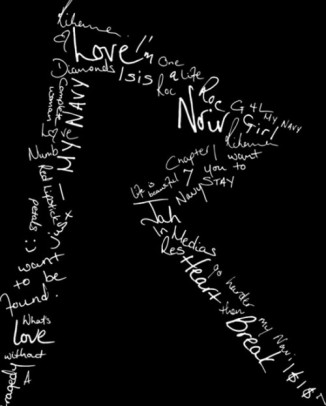 Rihanna
Love!
I'm One
Diamonds
Isis
a Life
Roc
Roc
Now
G4L
MY NAVY
Girl
Rihanna
Complete
woman
MY NAVY
Love
Numb
Red Lipstick
Chapter 7
I want
you to
STAY
Life is beautiful
Navy
Jah
In Medias
Res
Heart
go harder
then
Break
my Navi
petals
want
to be
found.
What's
Love
without
tragedy
A